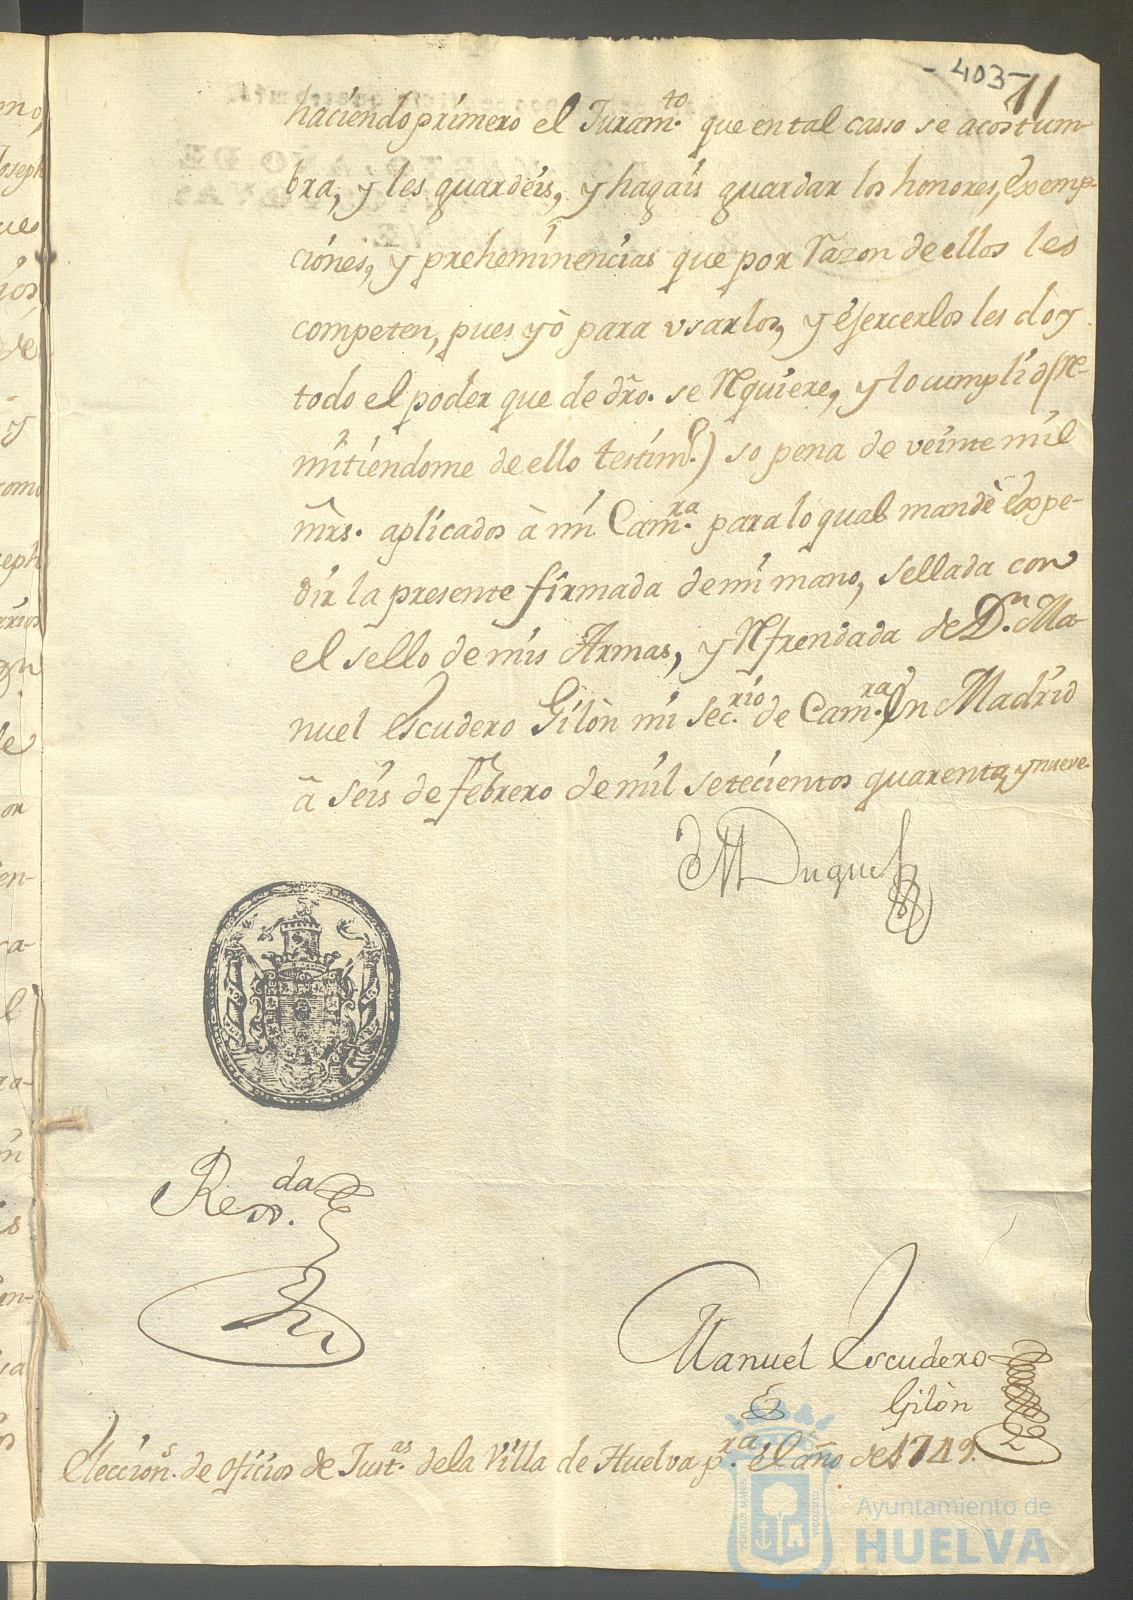 - 403 -
11
haciendo primero el Juram.to que en tal casso se acostum-
bra, y les guardéis, y hagáis guardar los honores, exemp-
ciones, y preheminencias que por razon de ellos les
competen, pues yò para vsarlos, y ejercerlos les doy
todo el poder que de dro. se requiere, y lo cumplid (re-
mitiendome de ello testim.o) so pena de veinte mil
mrs. aplicados à mi Cam.ra para lo qual mandè expe-
dir la presente firmada de mi mano, sellada con
el sello de mis Armas, y refrendada de D.n Ma-
nuel Escudero Gilòn mi Sec.rio de Cam.ra En Madrid
à seis de febrero de mil setecientos quarenta, y nueve.
El Duque
da
Manuel Escudero
Gilòn
Eleccion.s de oficios de Just.as de la Villa de Huelva p.ra el año de 1749.
Ayuntamiento de
HUELVA